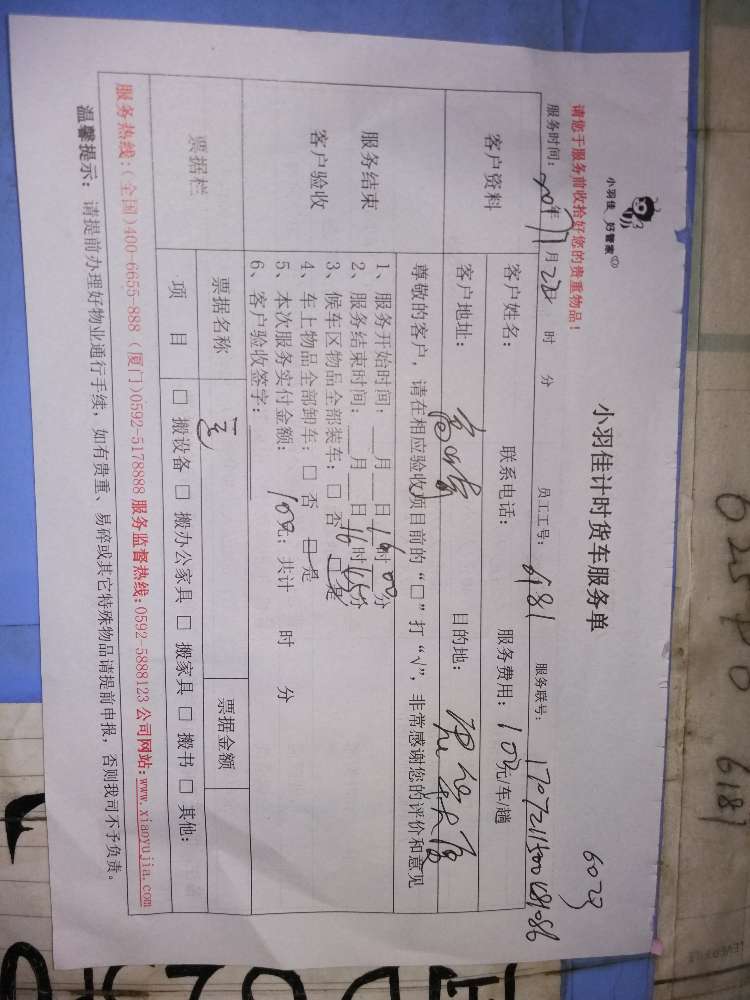 小羽佳 好管家
6029
小羽佳计时货车服务单
请您于服务前收拾好您的贵重物品！
服务时间： 年 月 时 分 员工工号：6181 服务联号：
客户资料 客户姓名： 联系电话： 服务费用：100元/车/趟
客户地址： 目的地：
尊敬的客户，请在相应验收项目前的“□”打“√”，非常感谢您的评价和意见
服务结束
客户验收
1、服务开始时间：__月__日 时00分
2、服务结束时间：__月__日16时45分
3、候车区物品全部装车：□ 否 □是
4、车上物品全部卸车：□ 否 □是
5、本次服务实付金额：100元；共计 时 分
6、客户验收签字：
票据栏 票据名称 票据金额
项 目 □ 搬设备 □ 搬办公家具 □ 搬家具 □ 搬书 □ 其他：
服务热线：(全国)400-6655-888 (厦门)0592-5178888 服务监督热线：0592-5888123 公司网站：www.xiaoyujia.com
温馨提示：请提前办理好物业通行手续，如有贵重、易碎或其它特殊物品请提前申报，否则我司不予负责。
6181